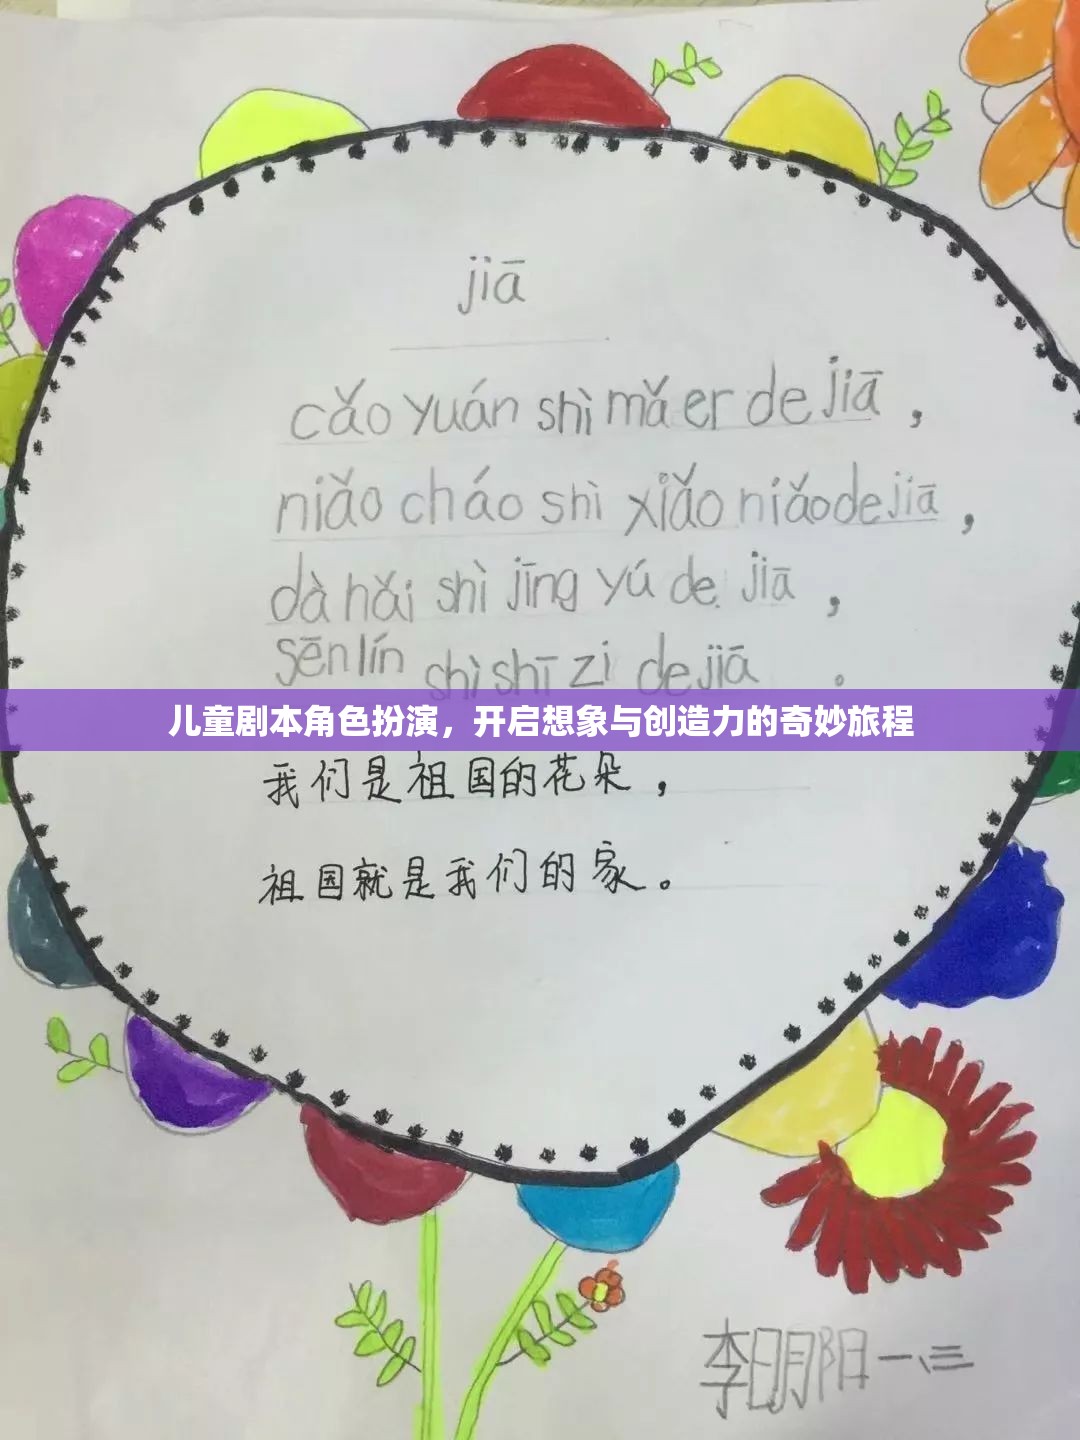 jiā
cǎo yuán shì mǎ er de jiā，
niǎo cháo shì xiǎo niǎo de jiā，
dà hǎi shì jīng yú de jiā，
sēn lín shì shī zi de jiā。
儿童剧本角色扮演，开启想象与创造力的奇妙旅程
我们是祖国的花朵，
祖国就是我们的家。
李明阳一、三